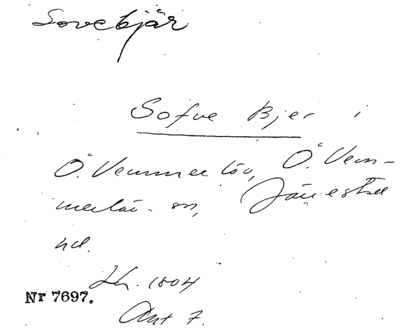 Sovebjär
Sofve Bjer i
Ö. Vemmerlöv, Ö. Vem-
merlöv sn, Järrestad
hd.
Lh. 1804
Akt 7.
Nr 7697.